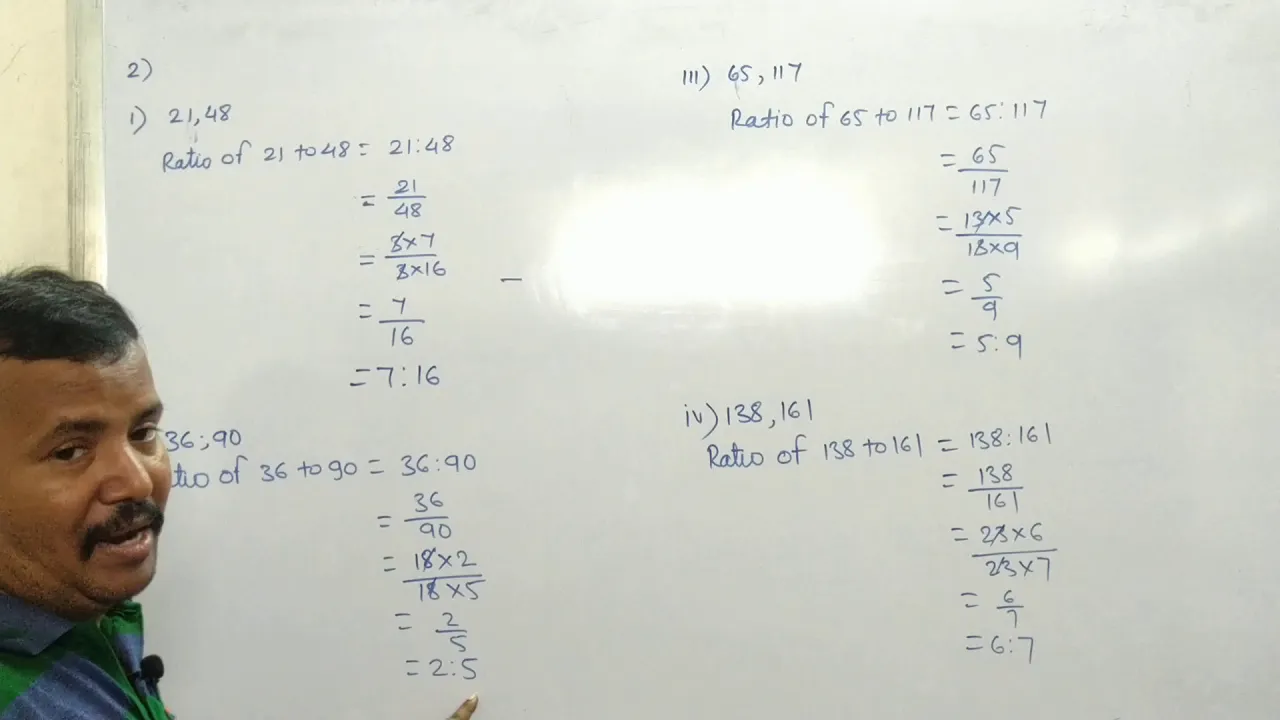 2)
i) 21,48
Ratio of 21 to 48 = 21:48
= 21/48
= 3×7/3×16
= 7/16
= 7:16
36;90
tio of 36 to 90 = 36:90
= 36/90
= 18×2/18×5
= 2/5
= 2:5
III) 65, 117
Ratio of 65 to 117 = 65:117
= 65/117
= 13×5/13×9
= 5/9
= 5:9
iv) 138, 161
Ratio of 138 to 161 = 138:161
= 138/161
= 23×6/23×7
= 6/7
= 6:7